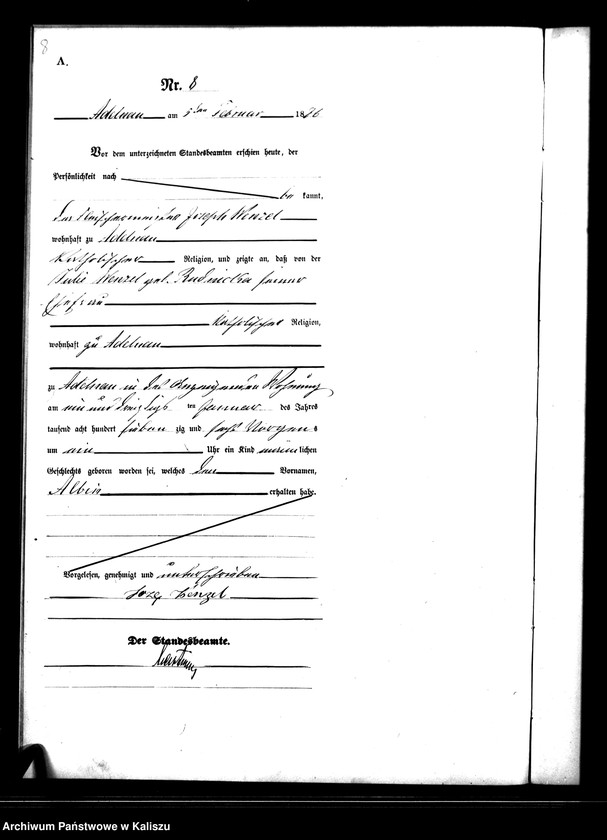 8
A.
Nr. 8
Adelnau am 5ten Februar 1876
Vor dem unterzeichneten Standesbeamten erschien heute, der
Persönlichkeit nach
be kannt,
der Fleischermeister Joseph Wenzel
wohnhaft zu Adelnau
katholischer Religion, und zeigte an, daß von der
Julie Wenzel geb. Rudnicka seiner
Ehefrau
katholischer Religion,
wohnhaft zu Adelnau
zu Adelnau in der Wohnung
am ein und dreißigs ten Januar des Jahres
tausend acht hundert sieben zig und sechs Morgens
um ein Uhr ein Kind männlichen
Geschlechts geboren worden sei, welches den Vornamen,
Albin erhalten habe.
Vorgelesen, genehmigt und unterschrieben
Józef Wenzel
Der Standesbeamte.
Archiwum Państwowe w Kaliszu